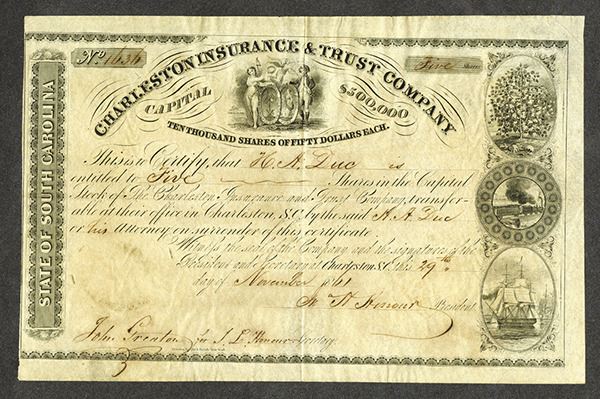 No 1636
Five Shares
CHARLESTON INSURANCE & TRUST COMPANY
CAPITAL $500,000
TEN THOUSAND SHARES OF FIFTY DOLLARS EACH.
STATE OF SOUTH CAROLINA
This is to Certify, that H. A. Duc is
entitled to Five Shares in the Capital
Stock of The Charleston Insurance and Trust Company, transfer-
able at their office in Charleston, S.C. by the said H. A. Duc
or his Attorney on surrender of this certificate.
Witness the seal of the Company and the signatures of the
President and Secretary at Charleston S.C. this 29th
day of November 1861
President
John Secretary